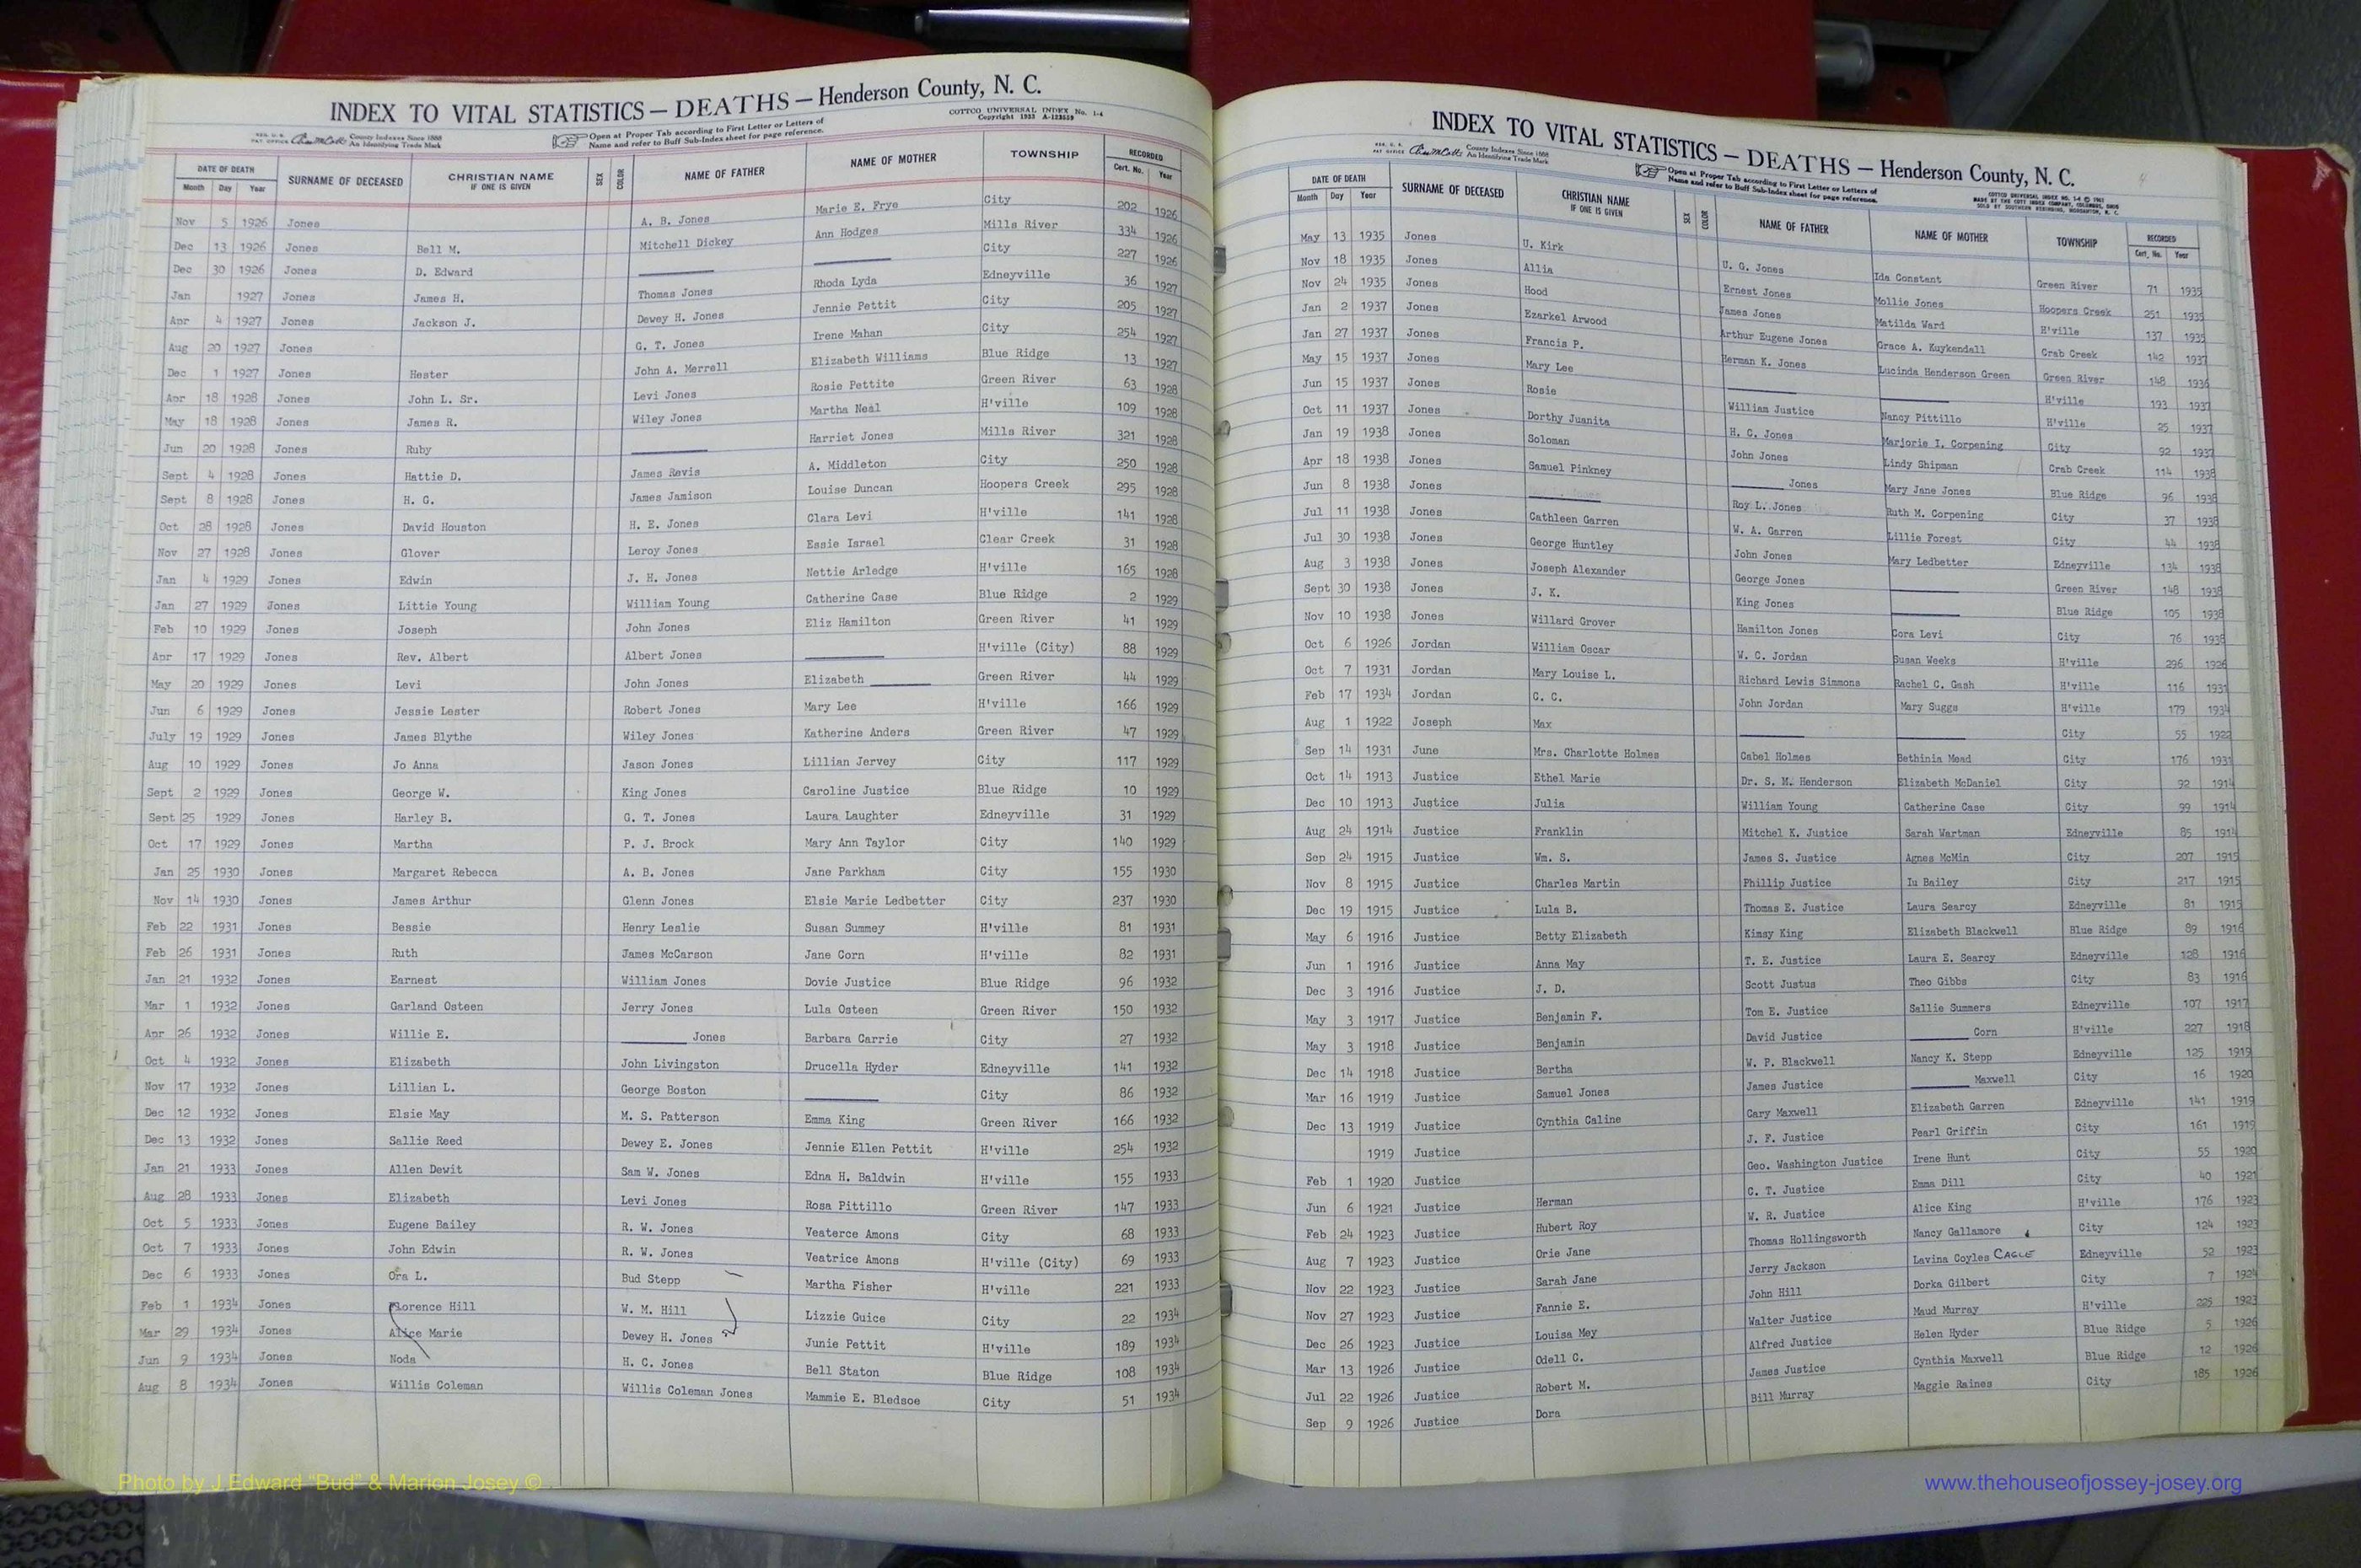 INDEX TO VITAL STATISTICS — DEATHS — Henderson County, N. C.
COTTCO UNIVERSAL INDEX No. 1-4
Copyright 1933 A-123539
County Indexes Since 1888
An Identifying Trade Mark
Open at Proper Tab according to First Letter or Letters of
Name and refer to Buff Sub-Index sheet for page reference.
DATE OF DEATH SURNAME OF DECEASED CHRISTIAN NAME IF ONE IS GIVEN SEX COLOR NAME OF FATHER NAME OF MOTHER TOWNSHIP RECORDED
Month Day Year Cert. No. Year
Nov 5 1926 Jones A. B. Jones Marie E. Frye City 202 1926
Dec 13 1926 Jones Bell M. Mitchell Dickey Ann Hodges Mills River 334 1926
Dec 30 1926 Jones D. Edward City 227 1926
Jan 1927 Jones James H. Thomas Jones Rhoda Lyda Edneyville 36 1927
Apr 4 1927 Jones Jackson J. Dewey H. Jones Jennie Pettit City 205 1927
Aug 20 1927 Jones G. T. Jones Irene Mahan City 254 1927
Dec 1 1927 Jones Hester John A. Merrell Elizabeth Williams Blue Ridge 13 1927
Apr 18 1928 Jones John L. Sr. Levi Jones Rosie Pettite Green River 63 1928
May 18 1928 Jones James R. Wiley Jones Martha Neal H'ville 109 1928
Jun 20 1928 Jones Ruby Harriet Jones Mills River 321 1928
Sept 4 1928 Jones Hattie D. James Revis A. Middleton City 250 1928
Sept 8 1928 Jones H. G. James Jamison Louise Duncan Hoopers Creek 295 1928
Oct 28 1928 Jones David Houston H. E. Jones Clara Levi H'ville 141 1928
Nov 27 1928 Jones Glover Leroy Jones Essie Israel Clear Creek 31 1928
Jan 4 1929 Jones Edwin J. H. Jones Nettie Arledge H'ville 165 1928
Jan 27 1929 Jones Littie Young William Young Catherine Case Blue Ridge 2 1929
Feb 10 1929 Jones Joseph John Jones Eliz Hamilton Green River 41 1929
Apr 17 1929 Jones Rev. Albert Albert Jones H'ville (City) 88 1929
May 20 1929 Jones Levi John Jones Elizabeth Green River 44 1929
Jun 6 1929 Jones Jessie Lester Robert Jones Mary Lee H'ville 166 1929
July 19 1929 Jones James Blythe Wiley Jones Katherine Anders Green River 47 1929
Aug 10 1929 Jones Jo Anna Jason Jones Lillian Jervey City 117 1929
Sept 2 1929 Jones George W. King Jones Caroline Justice Blue Ridge 10 1929
Sept 25 1929 Jones Harley B. G. T. Jones Laura Laughter Edneyville 31 1929
Oct 17 1929 Jones Martha P. J. Brock Mary Ann Taylor City 140 1929
Jan 25 1930 Jones Margaret Rebecca A. B. Jones Jane Parkham City 155 1930
Nov 14 1930 Jones James Arthur Glenn Jones Elsie Marie Ledbetter City 237 1930
Feb 22 1931 Jones Bessie Henry Leslie Susan Summey H'ville 81 1931
Feb 26 1931 Jones Ruth James McCarson Jane Corn H'ville 82 1931
Jan 21 1932 Jones Earnest William Jones Dovie Justice Blue Ridge 96 1932
Mar 1 1932 Jones Garland Osteen Jerry Jones Lula Osteen Green River 150 1932
Apr 26 1932 Jones Willie E. Jones Barbara Carrie City 27 1932
Oct 4 1932 Jones Elizabeth John Livingston Drucella Hyder Edneyville 141 1932
Nov 17 1932 Jones Lillian L. George Boston City 86 1932
Dec 12 1932 Jones Elsie May M. S. Patterson Emma King Green River 166 1932
Dec 13 1932 Jones Sallie Reed Dewey E. Jones Jennie Ellen Pettit H'ville 254 1932
Jan 21 1933 Jones Allen Dewit Sam W. Jones Edna H. Baldwin H'ville 155 1933
Aug 28 1933 Jones Elizabeth Levi Jones Rosa Pittillo Green River 147 1933
Oct 5 1933 Jones Eugene Bailey R. W. Jones Veaterce Amons City 68 1933
Oct 7 1933 Jones John Edwin R. W. Jones Veatrice Amons H'ville (City) 69 1933
Dec 6 1933 Jones Ora L. Bud Stepp Martha Fisher H'ville 221 1933
Feb 1 1934 Jones Florence Hill W. M. Hill Lizzie Guice City 22 1934
Mar 29 1934 Jones Alice Marie Dewey H. Jones Junie Pettit H'ville 189 1934
Jun 9 1934 Jones Noda H. C. Jones Bell Staton Blue Ridge 108 1934
Aug 8 1934 Jones Willis Coleman Willis Coleman Jones Mammie E. Bledsoe City 51 1934
INDEX TO VITAL STATISTICS — DEATHS — Henderson County, N. C.
County Indexes Since 1888
An Identifying Trade Mark
Open at Proper Tab according to First Letter or Letters of
Name and refer to Buff Sub-Index sheet for page reference.
DATE OF DEATH SURNAME OF DECEASED CHRISTIAN NAME IF ONE IS GIVEN SEX COLOR NAME OF FATHER NAME OF MOTHER TOWNSHIP RECORDED
Month Day Year Cert. No. Year
May 13 1935 Jones U. Kirk U. G. Jones Ida Constant Green River 71 1935
Nov 18 1935 Jones Allia Ernest Jones Mollie Jones Hoopers Creek 251 1935
Nov 24 1935 Jones Hood James Jones Matilda Ward H'ville 137 1935
Jan 2 1937 Jones Ezarkel Arwood Arthur Eugene Jones Grace A. Kuykendall Crab Creek 142 1937
Jan 27 1937 Jones Francis P. Herman K. Jones Lucinda Henderson Green Green River 148 1936
May 15 1937 Jones Mary Lee H'ville 193 1937
Jun 15 1937 Jones Rosie William Justice Nancy Pittillo H'ville 25 1937
Oct 11 1937 Jones Dorthy Juanita H. C. Jones Marjorie I. Corpening City 92 1937
Jan 19 1938 Jones Soloman John Jones Lindy Shipman Crab Creek 114 1938
Apr 18 1938 Jones Samuel Pinkney Jones Mary Jane Jones Blue Ridge 96 1938
Jun 8 1938 Jones Roy L. Jones Ruth M. Corpening City 37 1938
Jul 11 1938 Jones Cathleen Garren W. A. Garren Lillie Forest City 44 1938
Jul 30 1938 Jones George Huntley John Jones Mary Ledbetter Edneyville 134 1938
Aug 3 1938 Jones Joseph Alexander George Jones Green River 148 1938
Sept 30 1938 Jones J. K. King Jones Blue Ridge 105 1938
Nov 10 1938 Jones Willard Grover Hamilton Jones Cora Levi City 76 1938
Oct 6 1926 Jordan William Oscar W. C. Jordan Susan Weeks H'ville 296 1926
Oct 7 1931 Jordan Mary Louise L. Richard Lewis Simmons Rachel C. Gash H'ville 116 1931
Feb 17 1934 Jordan C. C. John Jordan Mary Suggs H'ville 179 1934
Aug 1 1922 Joseph Max City 55 1922
Sep 14 1931 June Mrs. Charlotte Holmes Cabel Holmes Bethinia Mead City 176 1931
Oct 14 1913 Justice Ethel Marie Dr. S. M. Henderson Elizabeth McDaniel City 92 1914
Dec 10 1913 Justice Julia William Young Catherine Case City 99 1914
Aug 24 1914 Justice Franklin Mitchel K. Justice Sarah Wartman Edneyville 85 1914
Sep 24 1915 Justice Wm. S. James S. Justice Agnes McMin City 207 1915
Nov 8 1915 Justice Charles Martin Phillip Justice Iu Bailey City 217 1915
Dec 19 1915 Justice Lula B. Thomas E. Justice Laura Searcy Edneyville 81 1915
May 6 1916 Justice Betty Elizabeth Kinsy King Elizabeth Blackwell Blue Ridge 89 1916
Jun 1 1916 Justice Anna May T. E. Justice Laura E. Searcy Edneyville 128 1916
Dec 3 1916 Justice J. D. Scott Justus Theo Gibbs City 83 1916
May 3 1917 Justice Benjamin F. Tom E. Justice Sallie Summers Edneyville 107 1917
May 3 1918 Justice Benjamin David Justice Corn H'ville 227 1918
Dec 14 1918 Justice Bertha W. P. Blackwell Nancy K. Stepp Edneyville 125 1919
Mar 16 1919 Justice Samuel Jones James Justice Maxwell City 16 1920
Dec 13 1919 Justice Cynthia Caline Cary Maxwell Elizabeth Garren Edneyville 141 1919
1919 Justice J. F. Justice Pearl Griffin City 161 1919
Feb 1 1920 Justice Geo. Washington Justice Irene Hunt City 55 1920
Jun 6 1921 Justice Herman C. T. Justice Emma Dill City 40 1921
Feb 24 1923 Justice Hubert Roy W. R. Justice Alice King H'ville 176 1923
Aug 7 1923 Justice Orie Jane Thomas Hollingsworth Nancy Gallamore City 124 1923
Nov 22 1923 Justice Sarah Jane Jerry Jackson Lavina Coyles CAGLE Edneyville 52 1923
Nov 27 1923 Justice Fannie E. John Hill Dorka Gilbert City 7 1924
Dec 26 1923 Justice Louisa Mey Walter Justice Maud Murray H'ville 225 1923
Mar 13 1926 Justice Odell C. Alfred Justice Helen Hyder Blue Ridge 5 1926
Jul 22 1926 Justice Robert M. James Justice Cynthia Maxwell Blue Ridge 12 1926
Sep 9 1926 Justice Dora Bill Murray Maggie Raines City 185 1926
Photo by J Edward “Bud” & Marion Josey ©
www.thehouseofjossey-josey.org